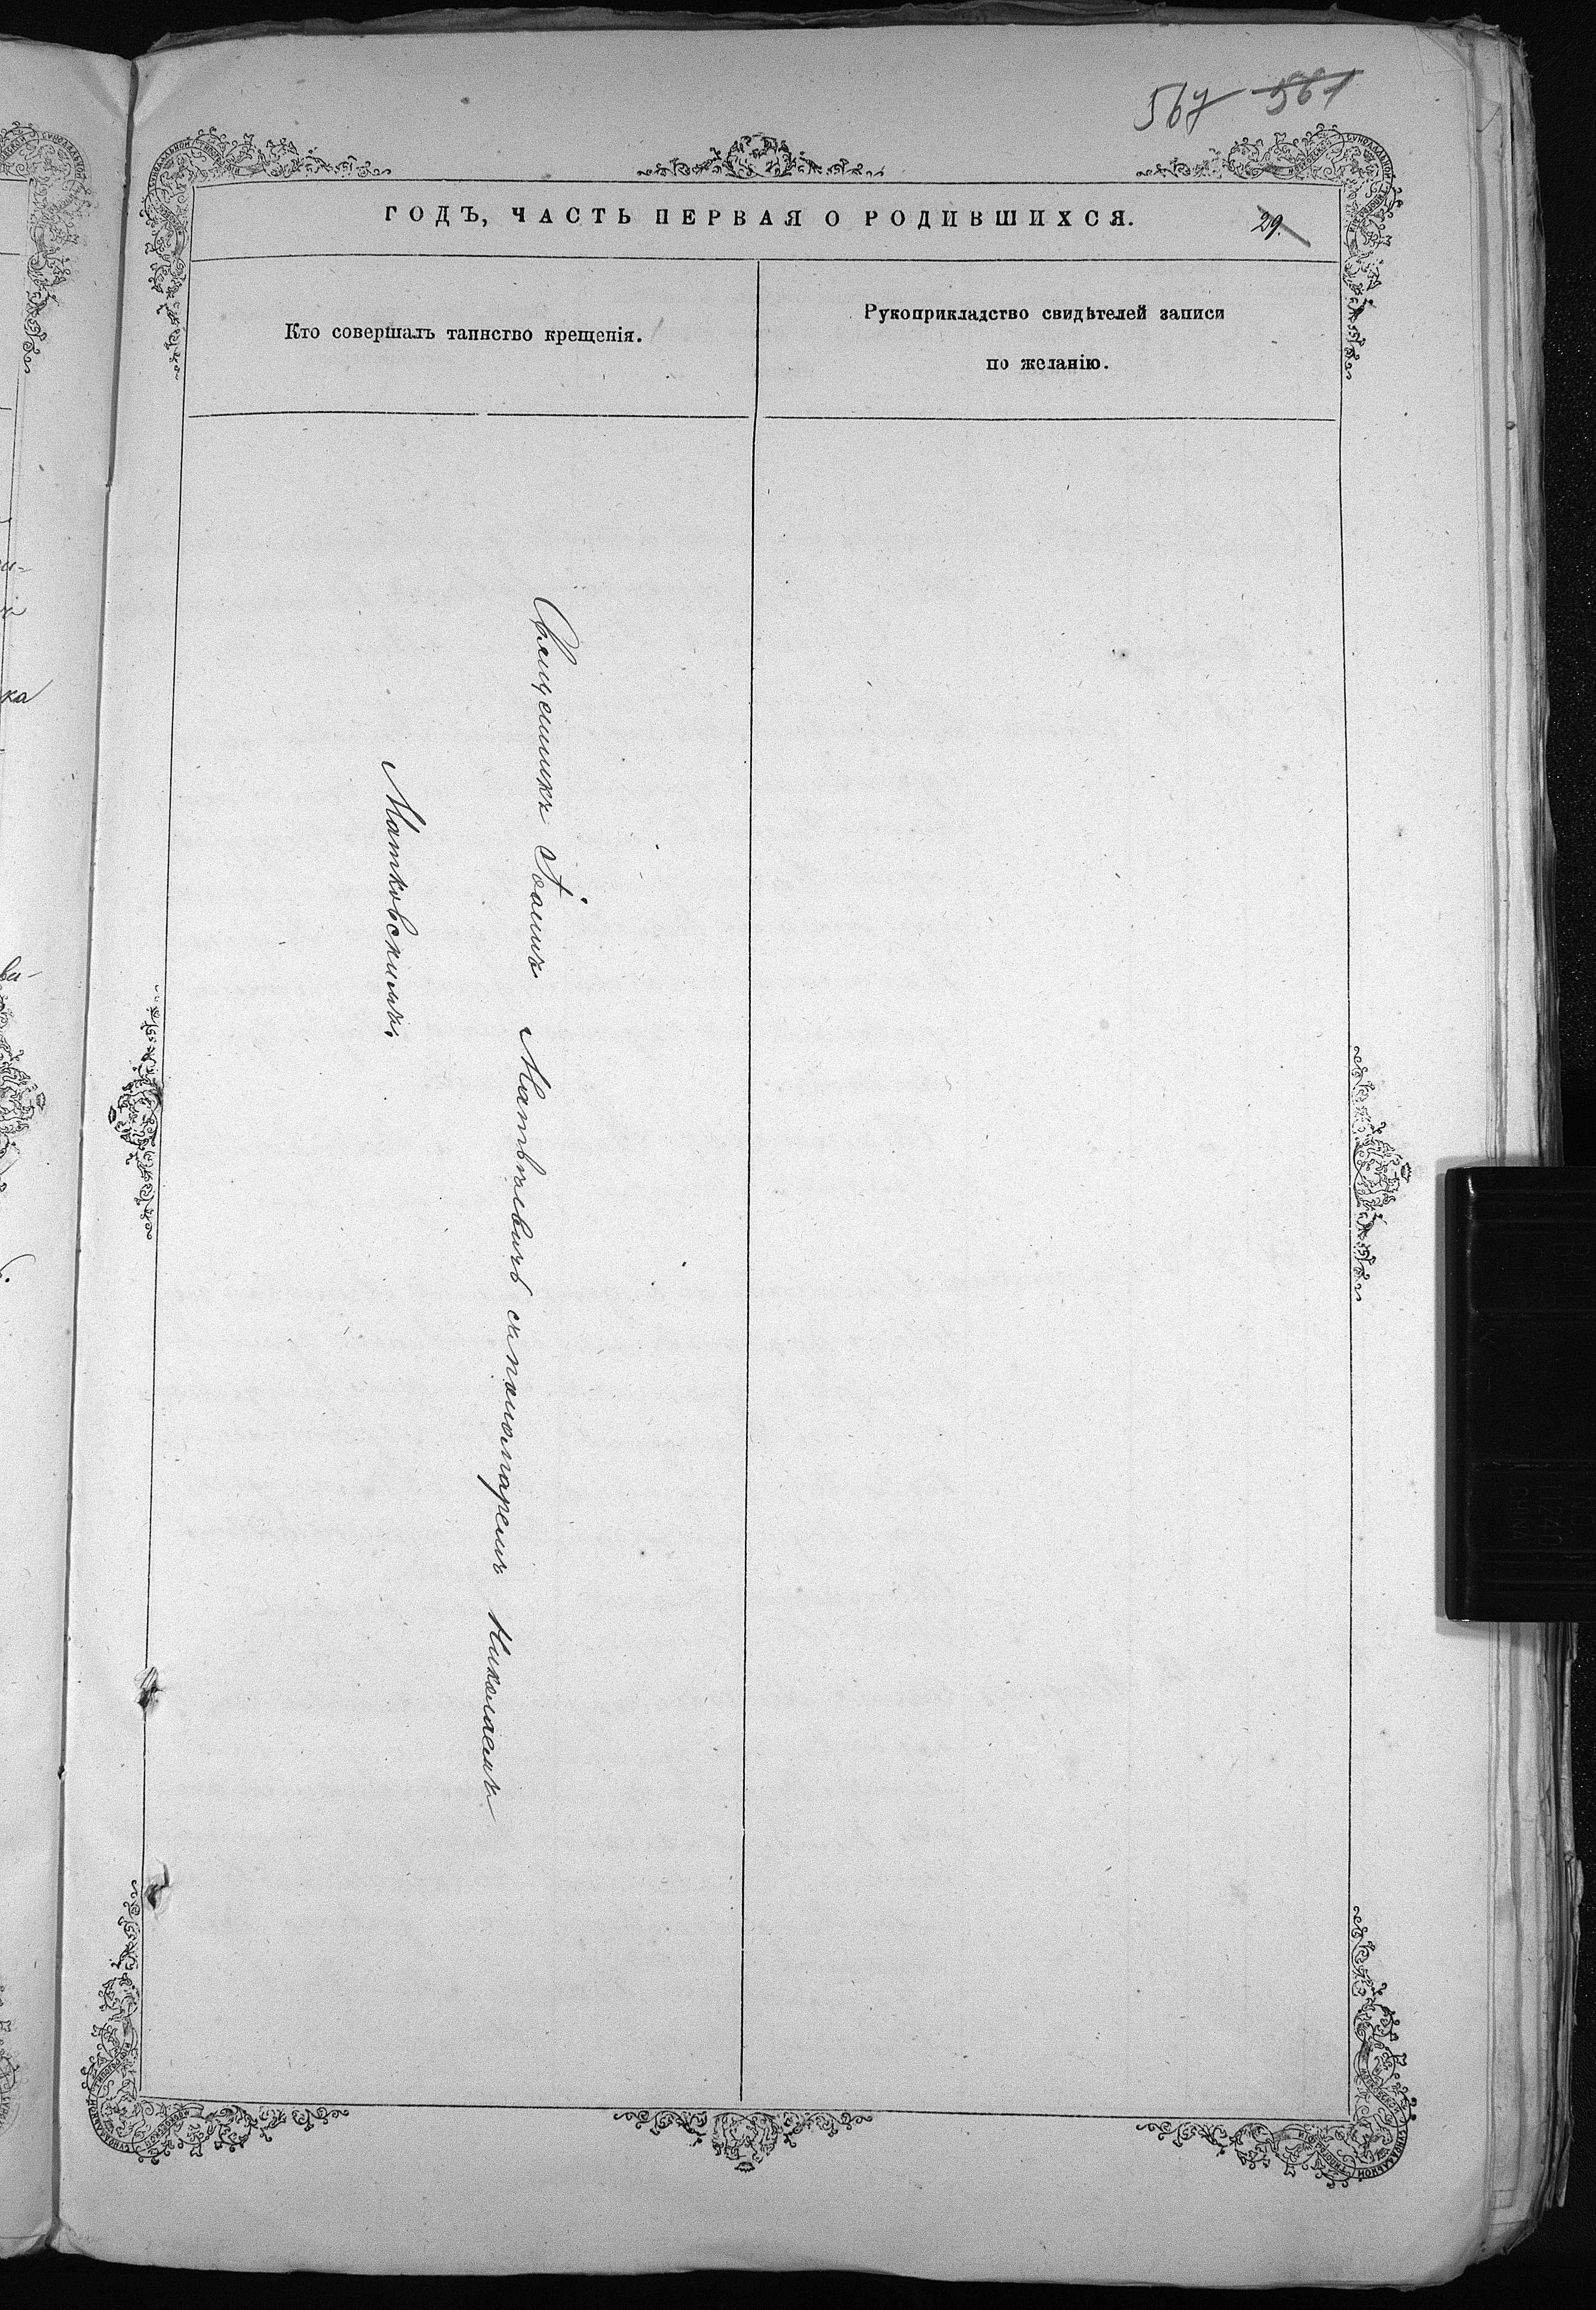 567 561
ГОДЪ, ЧАСТЬ ПЕРВАЯ О РОДИВШИХСЯ. 29.
Кто совершалъ таинство крещенія.
Рукоприкладство свидѣтелей записи
по желанію.
Священникъ Іоаннъ Матвѣевичъ съ пономаремъ Николаемъ
Матковскимъ.